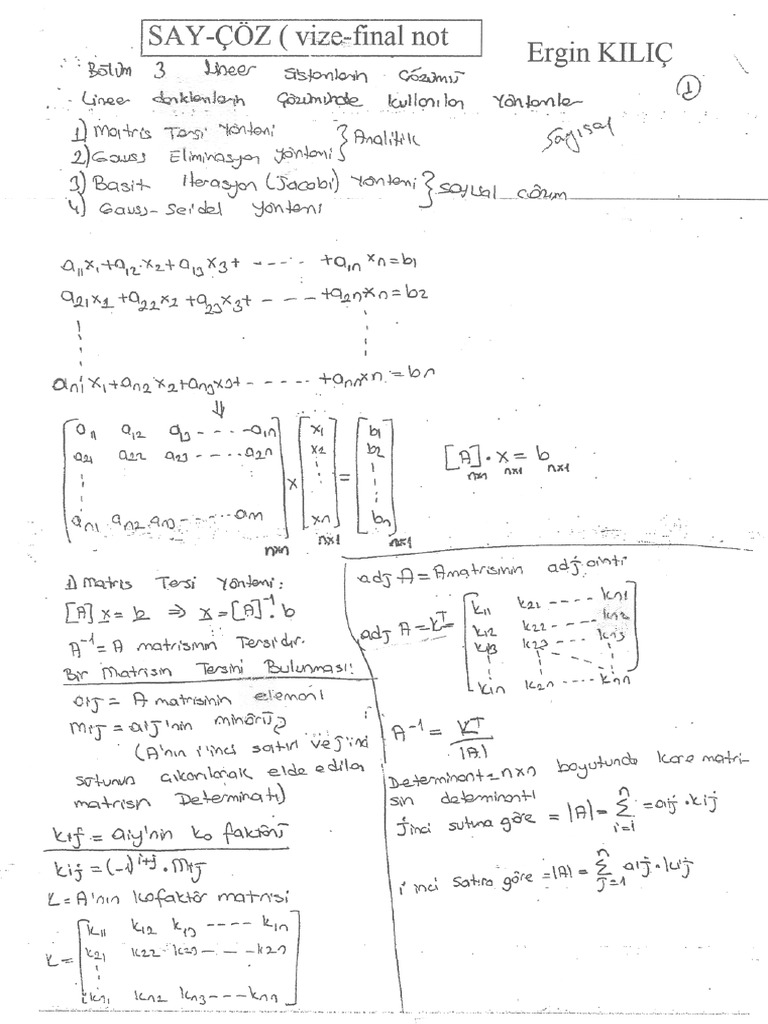 SAY-ÇÖZ ( vize-final not
Ergin KILIÇ
Bölüm 3 Lineer Sistemlerin Çözümü
1
Lineer denklemlerin Çözümünde kullanılan Yöntemler
Sayısal
1) Matris Tersi Yöntemi
2) Gauss Eliminasyon Yöntemi } Analitik
3) Basit İterasyon (Jacobi) Yöntemi
4) Gauss-Seidel Yöntemi } sayısal çözüm
a11x1+a12x2+a13x3+ ------ +a1n xn=b1
a21x1+a22x2+a23x3+ - - - - +a2n xn=b2
an1x1+an2x2+an3x3+ ------ +ann xn=bn
⇓
[a11 a12 a13 ---- a1n] [x1] [b1]
[a21 a22 a23 ---- a2n] x [x2] = [b2]
[an1 an2 an3 ---- ann] [xn] [bn]
nxn nx1 nx1
[A] . x = b
nxn nx1 nx1
1) Matris Tersi Yöntemi:
[A] x = b ⇒ x = [A]⁻¹. b
A⁻¹ = A matrisinin Tersidir.
Bir Matrisin Tersini Bulunması:
aij = A matrisinin elemanı
Mij = aij'nin minörü
(A'nın i'inci satırı ve j'inci
sutunun çıkarılarak elde edilen
matrisin Determinatı)
kij = aij'nin ko faktörü
kij = (-1)^i+j . Mij
K = A'nın kofaktör matrisi
K = [k11 k12 k13 ---- k1n]
[k21 k22 k23 - - - k2n]
[kn1 kn2 kn3 --- knn]
adj A = A matrisinin adj ointi
adj A = K^T = [k11 k21 ---- kn1]
[k12 k22 ---- kn2]
[k13 k23 ---- kn3]
[k1n k2n ---- knn]
A⁻¹ = K^T / |A|
Determinant = nxn boyutunda kare matri-
sin determinantı
j inci sutuna göre = |A| = Σ^n_i=i = aij . kij
i inci satıra göre = |A| = Σ^n_j=1 aij . kij